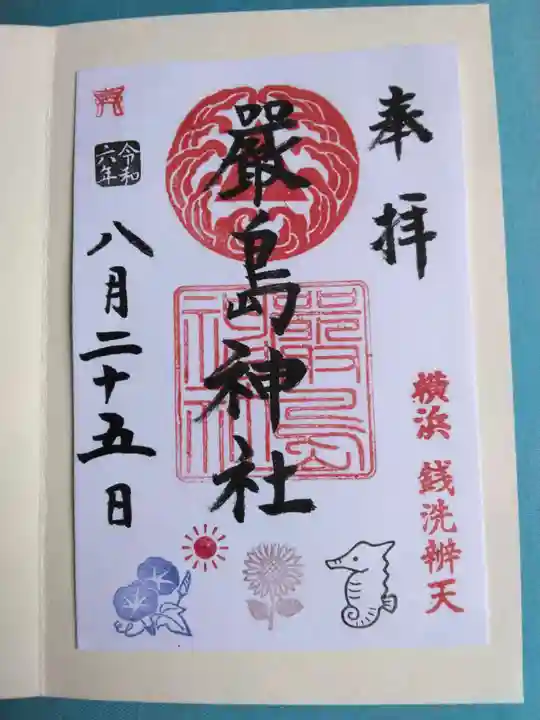 奉拝
横浜 銭洗辨天
嚴島神社
嚴島神社
令和六年
八月二十五日